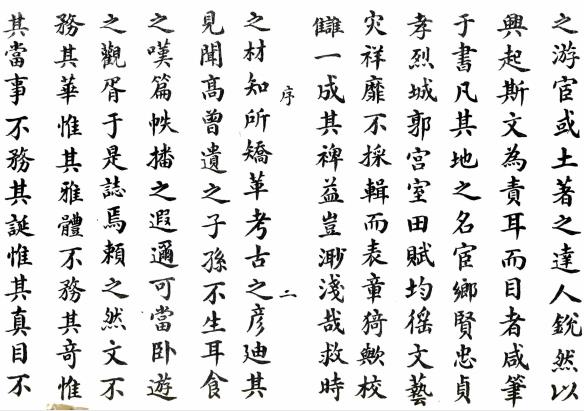 之游宦或土著之達人銳然以
興起斯文為責耳而目者咸筆
于書凡其地之名宦鄉賢忠貞
孝烈城郭宮室田賦均徭文藝
災祥靡不採輯而表章猗歟校
讎一成其裨益豈渺淺哉救時
序
二
之材知所矯革考古之彥廸其
見聞高曾遺之子孫不生耳食
之嘆篇帙播之遐邇可當卧遊
之觀胥于是誌焉賴之然文不
務其華惟其雅體不務其奇惟
其當事不務其誕惟其真目不